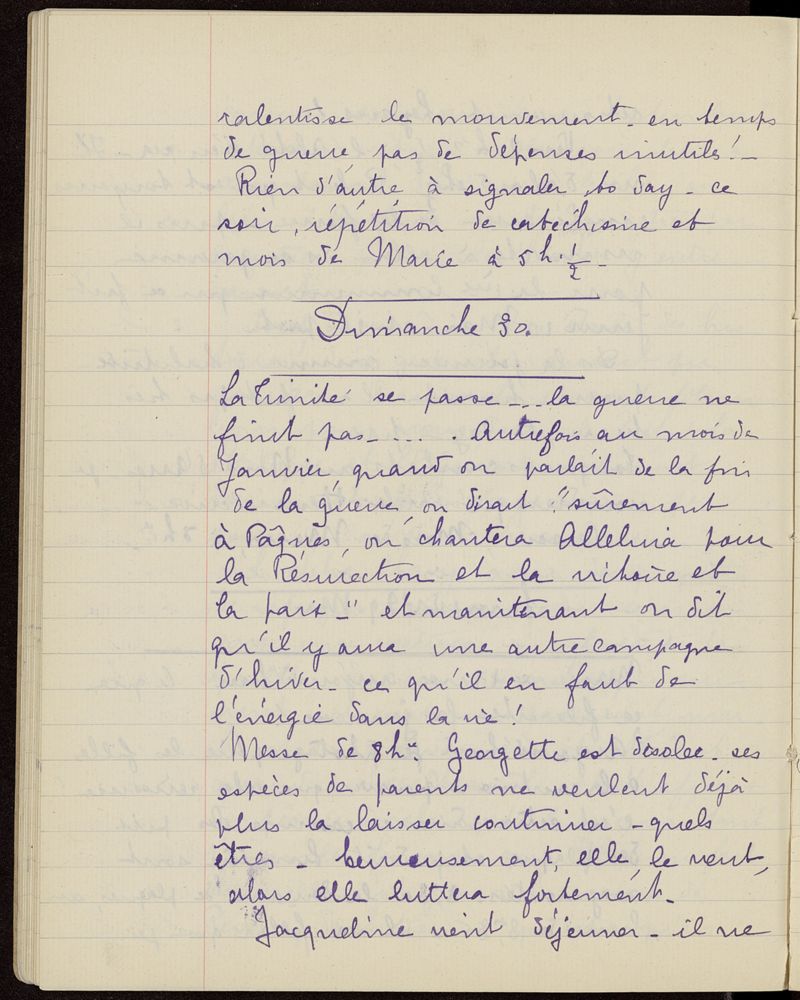 ralentisse le mouvement - en temps
de guerre, pas de dépenses inutiles! -
Rien d'autre à signaler to day - ce
soir, répétition de catéchisme et
mois de Marie à 5h.1/2 -
Dimanche 30.
La Trinité se passe - .. la guerre ne
finit pas - ... . Autrefois au mois de
Janvier, quand on parlait de la fin
de la guerre, on disait : "sûrement
à Pâques, on chantera Alleluia pour
la Résurrection et la victoire et
la paix -" et maintenant on dit
qu'il y aura une autre campagne
d'hiver - ce qu'il en faut de
l'énergie dans la vie!
Messe de 8h. Georgette est désolée - ses
espèces de parents ne veulent déjà
plus la laisser continuer - quels
êtres - heureusement, elle, le veut,
alors elle luttera fortement -
Jacqueline vient déjeuner - il ne